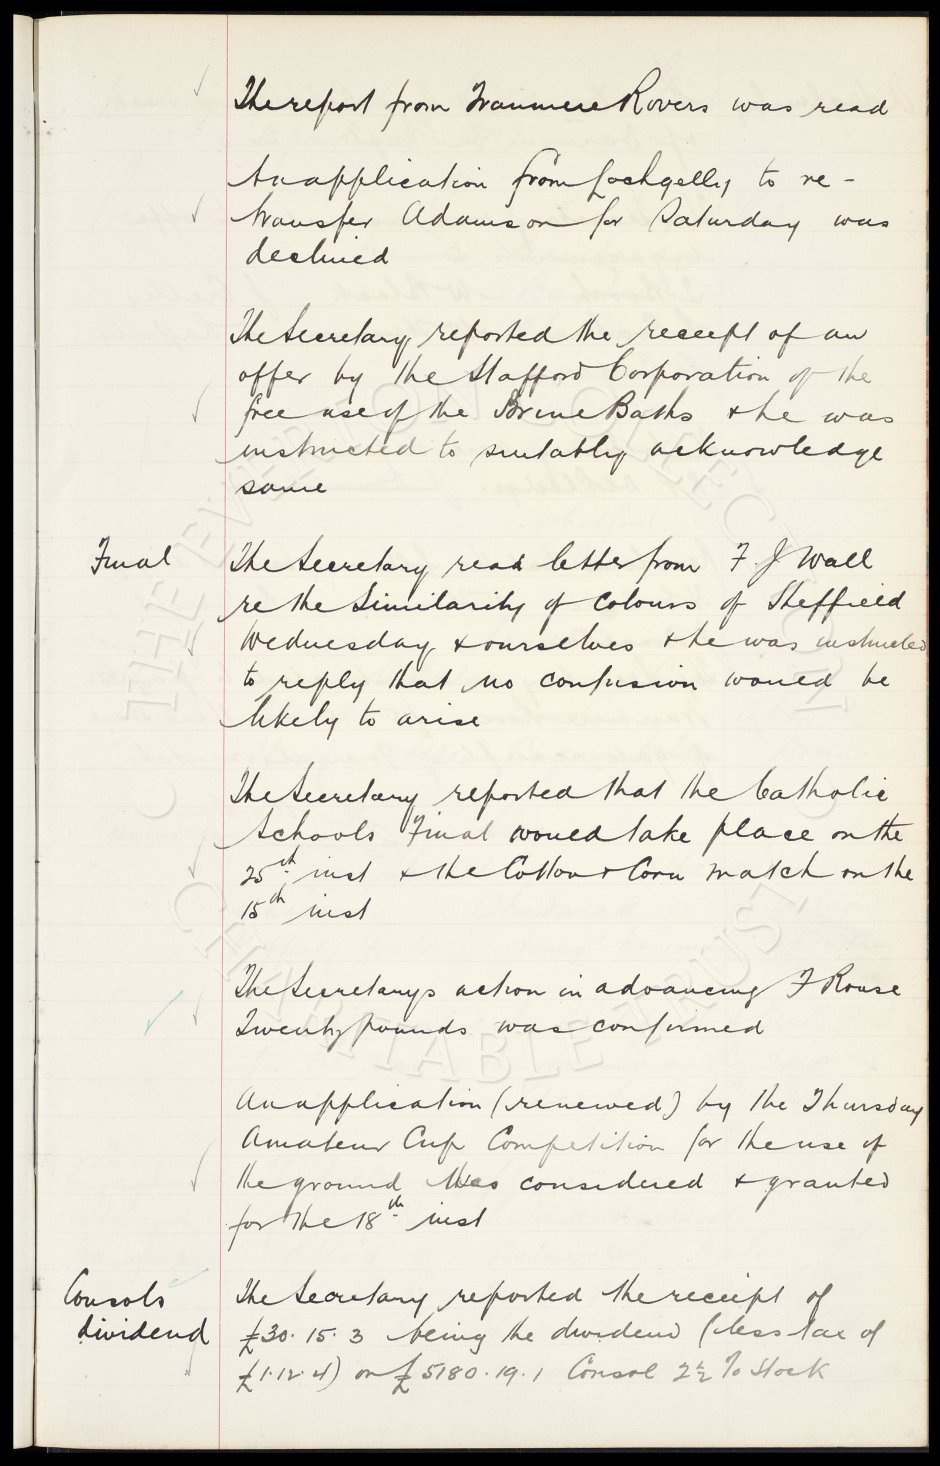 The report from Tranmere Rovers was read
An application from Lochgelly to re-
transfer Adamson for Saturday was
declined
The Secretary reported the receipt of an
offer by the Stafford Corporation of the
free use of the Brine Baths & he was
instructed to suitably acknowledge
same
Final
The Secretary read letter from F. J Wall
re the Similarity of colours of Sheffield
Wednesday & ourselves & he was instructed
to reply that no confusion would be
likely to arise
The Secretary reported that the Catholic
Schools Final would take place on the
25th inst & the Cotton & Corn match on the
15th inst
The Secretarys action in advancing F Rouse
Twenty pounds was confirmed
An application (renewed) by the Thursday
Amateur Cup Competition for the use of
the ground was considered & granted
for the 18th inst
Consols
dividend
The Secretary reported the receipt of
£30.15.3 being the dividend (less tax of
£1.12.4) on £5180.19.1 Consol 2½% Stock
© THE EVERTON COLLECTION
CHARITABLE TRUST